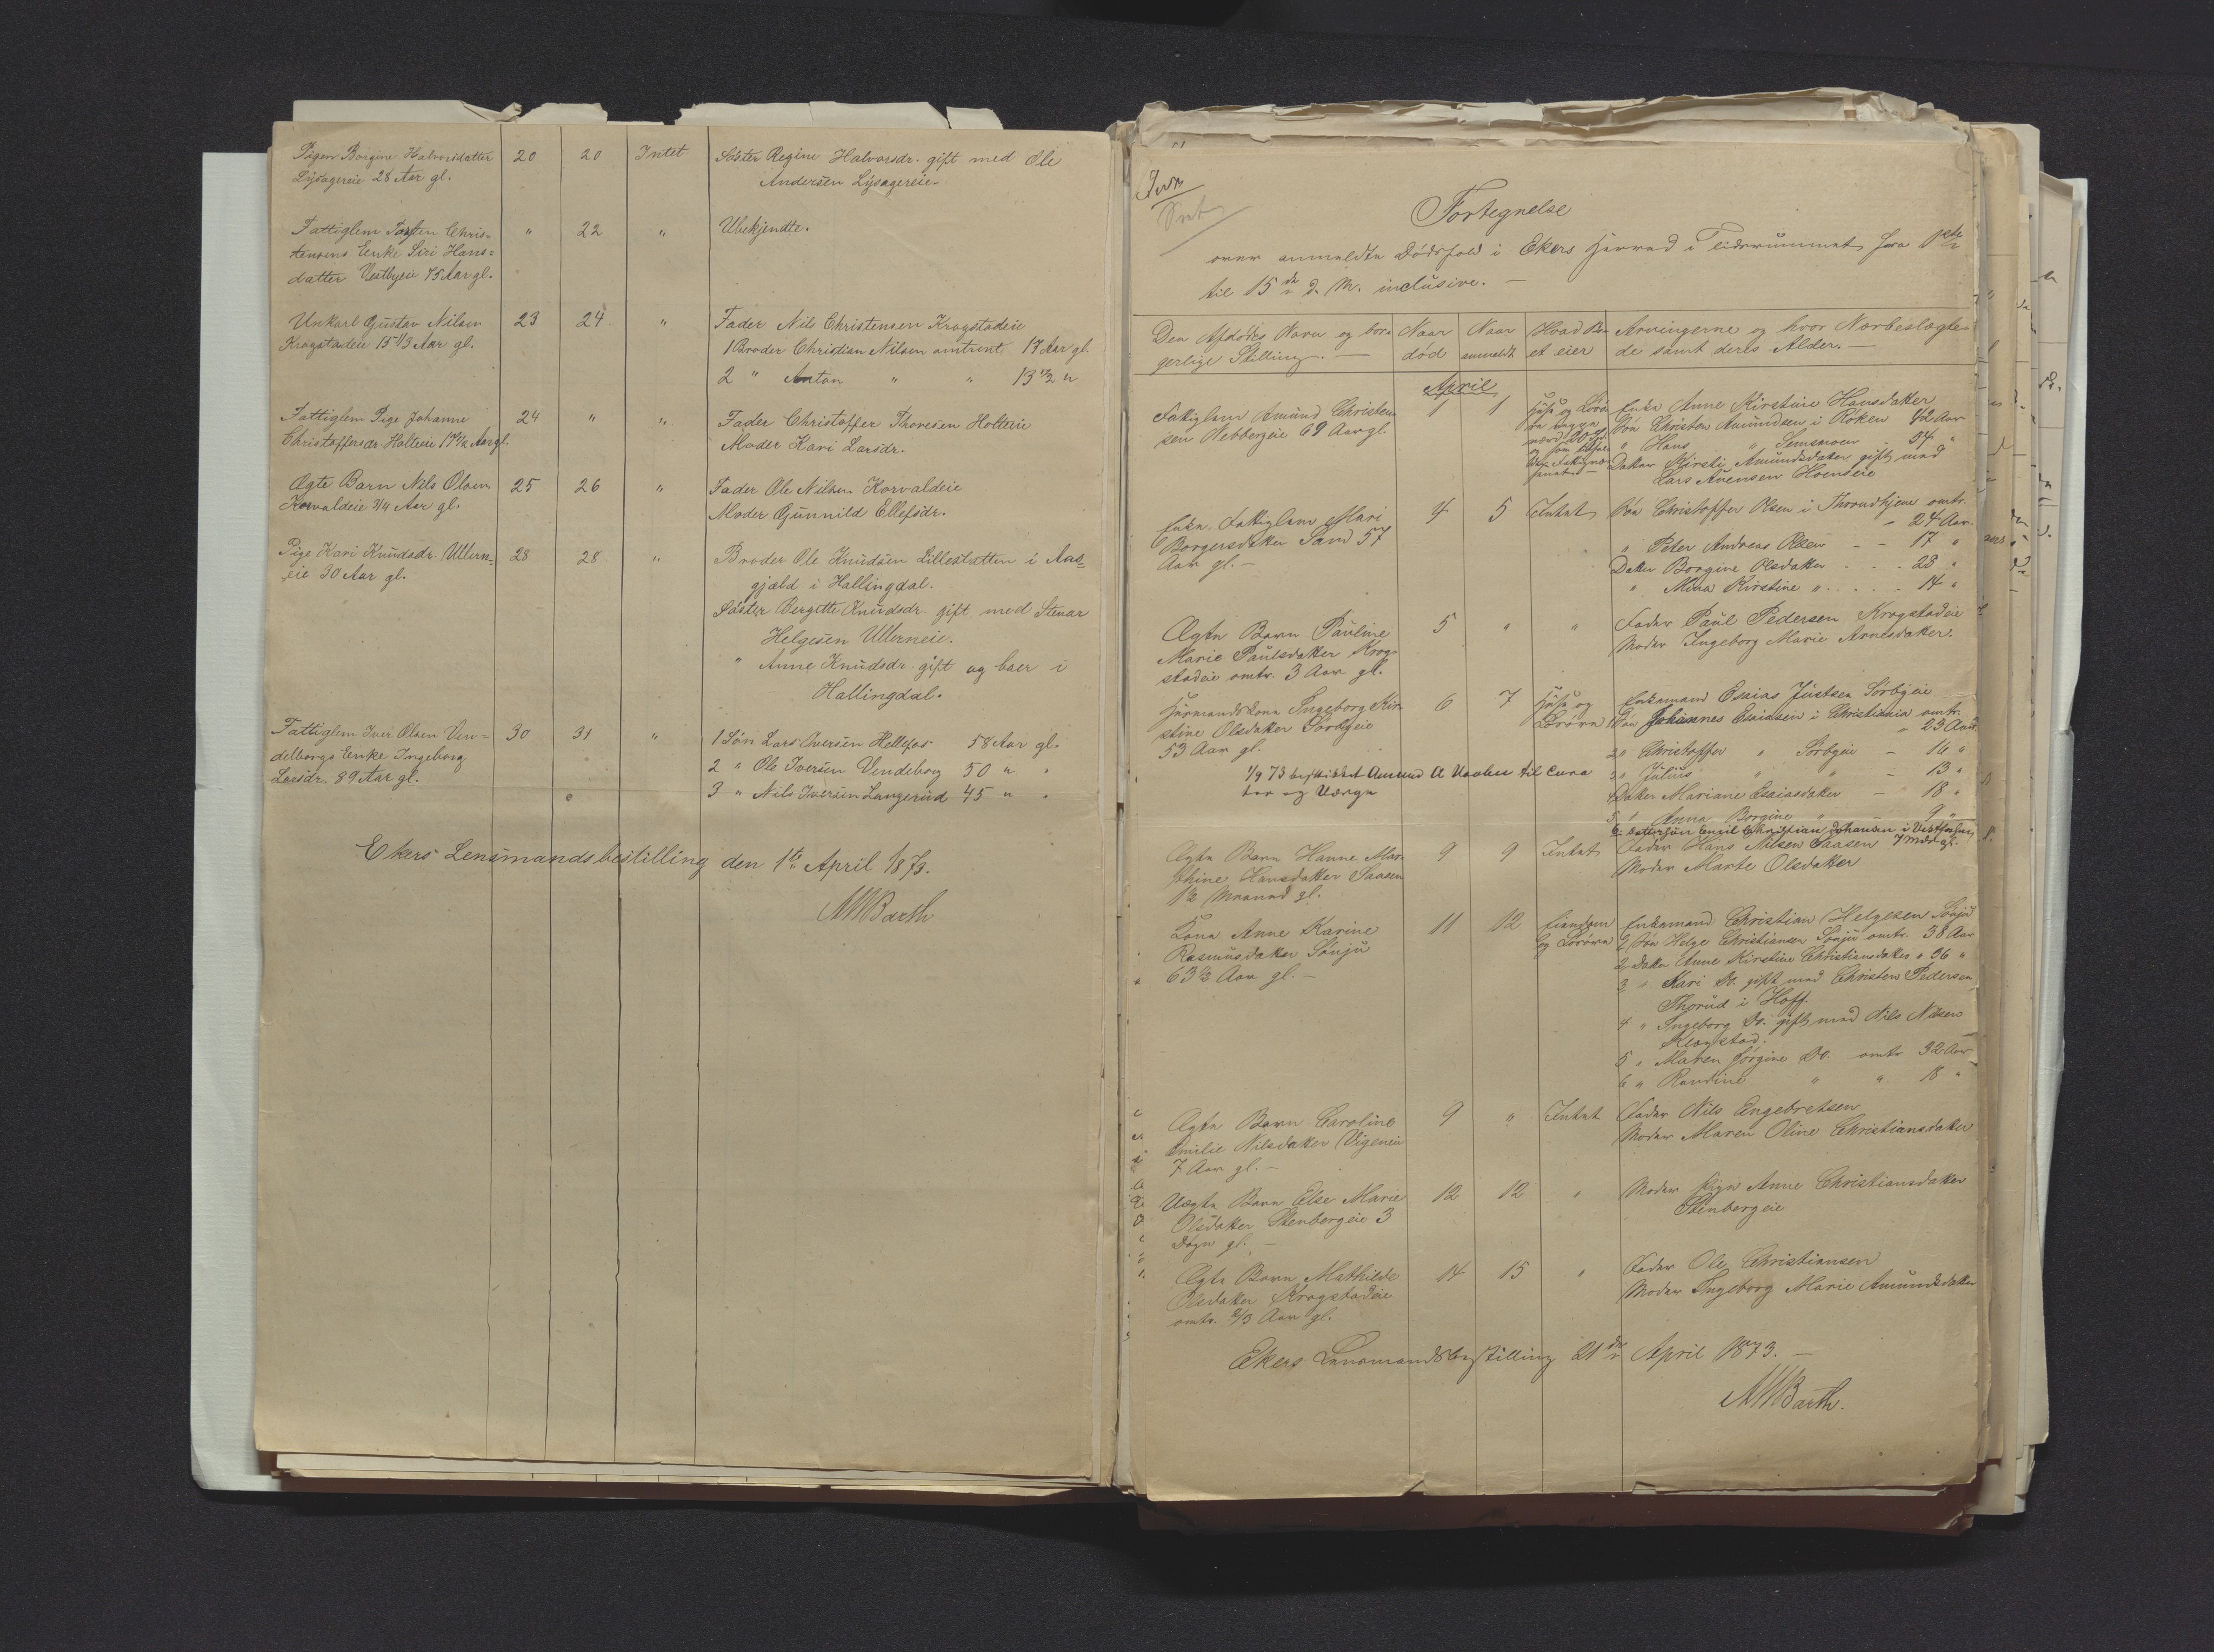 Pigen Borgine Halvorsdatter 20 20 Intet Søster Regine Halvorsdr. gift med Ole
Lysagereie 28 Aar gl. Andersen Lysagereie.
Fattiglem Torsten Chris= " 22 " Ubekjendte.
tensens Enke Siri Hans=
datter Vestbyeie 75 Aar gl.
Unkarl Gustav Nilsen 23 24 " Fader Nils Christensen Krogstadeie
Krogstadeie 15 1/3 Aar gl. 1 Broder Christian Nilsen omtrent 17 Aar gl.
2 " Anton " " 13 1/2 "
Fattiglem Pige Johanne 24 " " Fader Christoffer Thoresen Holteeie
Christoffersdr. Holteeie 17 1/2 Aar gl. Moder Kari Larsdr.
Ægte Barn Nils Olsen 25 26 " Fader Ole Nilsen Korvaldeie
Korvaldeie 3/4 Aar gl. Moder Gunnild Ellefsdr.
Pige Kari Knudsdr. Ullern= 28 28 " Broder Ole Knudsen Lilleslatten i Aas=
eie 30 Aar gl. gjæld i Hallingdal.
Søster Bergitte Knudsdr. gift med Stenar
Helgesen Ullerneie.
" Anne Knudsdr. gift og boer i
Hallingdal.
Fattiglem Iver Olsen Ven= 30 31 " 1 Søn Lars Iversen Hellefos 58 Aar gl.
delborgs Enke Ingeborg 2 " Ole Iversen Vendeborg 50 " "
Larsdr. 89 Aar gl. 3 " Nils Iversen Langerud 45 " "
Ekers Lensmandsbestilling den 1ste April 1873.
MBarth
Fortegnelse
over anmeldte Dødsfald i Ekers Herred i Tidsrummet fra 1ste
til 15de d. M. inclusive. —
Den Afdødes Navn og bor= Naar Naar Hvad Bo= Arvingerne og hvor Nærbeslægte=
gerlige Stilling. — død anmeldt et eier de samt deres Alder. —
April
Fattiglem Amund Christen= 1 1 Huse og Løsøre Enke Anne Kirstine Hansdatter
sen Nebbergeie 69 Aar gl. Søn Christen Amundsen i Röken 42 Aar
" Hans " Semsmoen - 34 "
Datter Kirsti Amundsdatter gift med
Lars Evensen Hoenseie
Enke Fattiglem Mari 4 5 Intet Søn Christoffer Olsen i Throndhjem omtr.
Borgersdatter Sand 57 - 24 Aar.
Aar gl. — " Peter Andreas Olsen - - 17 "
Datter Borgine Olsdatter - - - 23 "
" Mina Kirstine " - - - 14 "
Ægte Barn Pauline 5 " " Fader Paul Pedersen Krogstadeie
Marie Paulsdatter Krog= Moder Ingeborg Marie Arnesdatter.
stadeie omtr. 3 Aar gl.
Huusmandskone Ingeborg Kir= 6 7 Huse og Enkemand Esaias Justsen Sørbyeie
stine Olsdatter Sørbyeie Løsøre 1 Søn Johannes Esaiasen i Christiania omtr.
53 Aar gl. " 23 Aar
2 " Christoffer " Sørbyeie - 16 "
3 " Julius " " - 13 "
1/9 73 beskikket Amund A Vaalen til Cura
tor og Værge
4 Datter Mariane Esaiasdatter - 18 "
5 " Anna Borgine " - 9 "
6. Dattersøn Emil Christian Johansen i Vestfossen 7 Mdr gl.
Ægte Barn Hanne Mar= 9 9 Intet Fader Hans Nilsen Saasen
thine Hansdatter Saasen Moder Marte Olsdatter
1 1/2 Maaned gl.
Kone Anne Karine 11 12 Eiendom Enkemand Christian Helgesen Sønju
Rasmusdatter Sønju og Løsøre 1 Søn Helge Christiansen Sønju omtr. 38 Aar
63 1/2 Aar gl. — 2 Datter Anne Kirstine Christiansdatter " 36 "
3 " Kari Do. gift med Christen Pedersen
Thorud i Hoff.
4 " Ingeborg Do. gift med Nils Nilsen
Klogstad.
5 " Maren Jørgine Do. omtr 32 Aar
6 " Randine " " 18 "
Ægte Barn Caroline 9 " Intet Fader Nils Engebretsen
Emilie Nilsdatter Vigeneie Moder Maren Oline Christiansdatter
7 Aar gl. —
Uægte Barn Else Marie 12 12 " Moder Pige Anne Christiansdatter
Olsdatter Stenbergeie 3 Stenbergeie
Døgn gl. —
Ægte Barn Mathilde 14 15 " Fader Ole Christiansen
Olsdatter Krogstadeie Moder Ingeborg Marie Amundsdatter
omtr. 2/3 Aar gl.
Ekers Lensmandsbestilling 21de April 1873. —
MBarth.